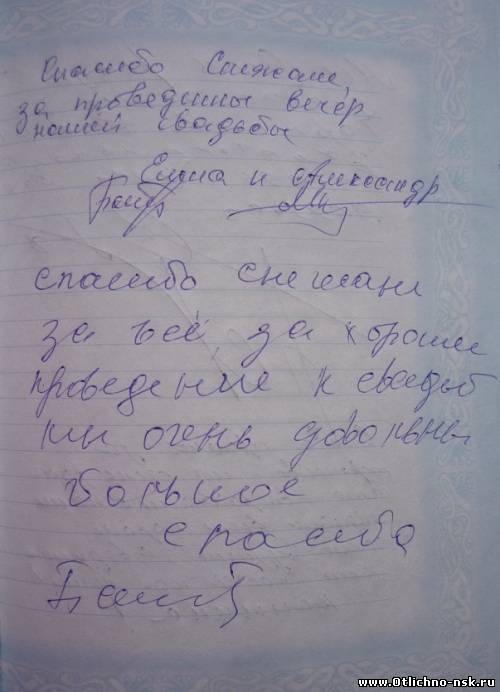 Спасибо Снежане,
за проведенны вечер
нашей свадьбы
Елена и Александр
спасибо снежане
за всё за хороше
проведение к свадьб
мы очень довольны
большое
спасибо
www.Otlichno-nsk.ru